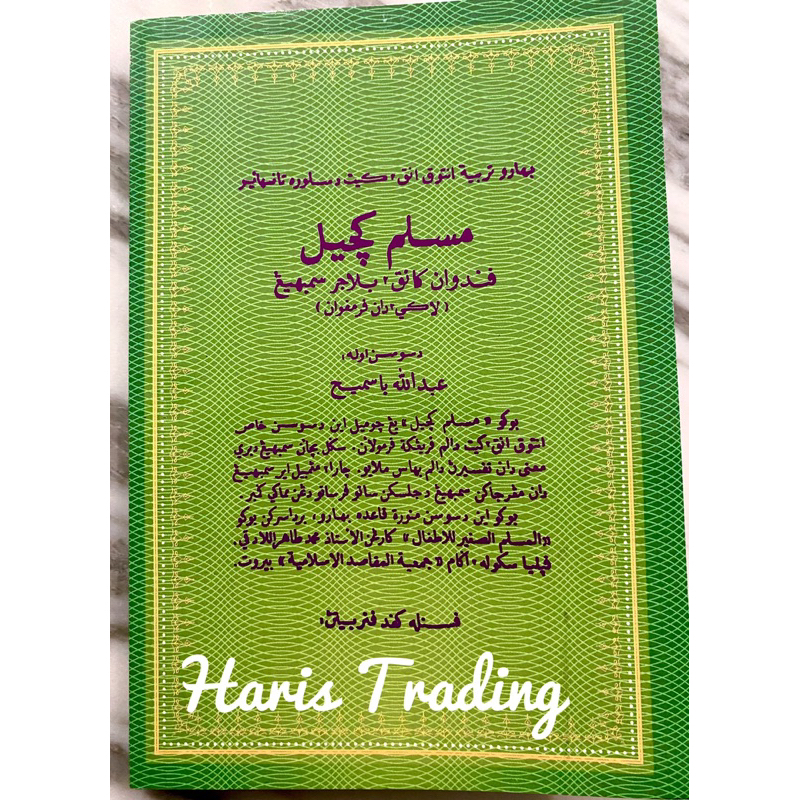 بهارو تربية انتوق انق٢ كيت دسلوره تانهاير
مسلم كچيل
فندوان كانق٢ بلاجر سمبهيڠ
(لاكي٢ دان فرمفوان)
دسوسن اوله:
عبدالله باسميح
بوكو «مسلم كچيل» يڠ چوميل اين دسوسن خاص
انتوق انق٢ كيت دالم فريڠكة فرمولاءن. سكل بچاءن سمبهيڠ دبري
معنى دان تفسيرڽ دالم بهاس ملايو. چارا٢ مڠمبيل اير سمبهيڠ
دان مڠرجاكن سمبهيڠ دجلسكن ساتو فرساتو دڠن ماكي ݢمبر.
بوكو اين دسوسن منورة قاعده بهارو، برداسركن بوكو
«المسلم الصغير للاطفال» كارڠن الأستاذ محمد طاهر اللادقي.
ڤڽليا سكوله٢ اݢام «جمعية المقاصد الاسلامية» بيروت.
فسنله كفد فنربيتڽ:
Haris Trading